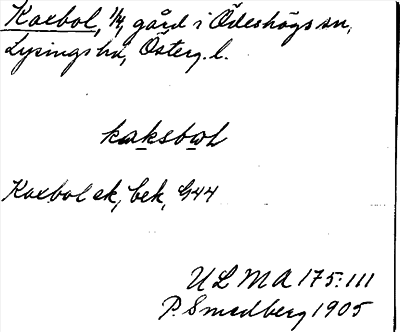 Kaxbol, 1/4, gård i Ödeshögs sn,
Lysings hd, Österg. l.
kaksbωl
Kaxbol ek, bek, G44
ULMA 175:111
P. Smedberg 1905